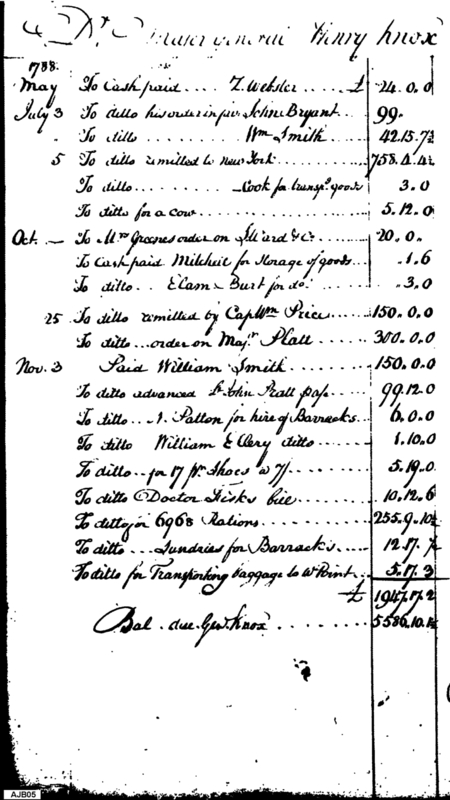 Dr Major General Henry Knox
1788.
May To Cash paid .... Z. Webster ... £ 24.0.0
July 3 To ditto his order in fav. John Bryant ... 99.
" To ditto ......... Wm Smith ..... 42.15.7½
5 To ditto remitted to New York ........ 758.4.4½
To ditto ........ Cook for transpg goods 3.0
To ditto for a cow ............... 5.12.0
Oct. — To Mrs Greenes order on & Co. 20.0.
To Cash paid Mitchell for Storage of goods .. 1.6
To ditto .. Elam & Burt for do. ..... .3.0
25 To ditto remitted by Cap Wm Price ..... 150.0.0
To ditto ... order on Majr Platt ..... 300.0.0
Nov. 3 Paid William Smith ........ 150.0.0
To ditto advanced Lt John Pratt 99.12.0
To ditto .. N. Patton for hire of Barracks ... 6.0.0
To ditto William Ellery ditto ..... 1.10.0
To ditto .. for 17 pr Shoes @ 7/ ....... 5.19.0
To ditto Doctor Fisks bill ....... 10.12.6
To ditto for 6968 Rations ........ 255.9.10½
To ditto ... Sundries for Barracks ..... 12.17.
To ditto for Transporting baggage to W Point .. 5.17.3
£ 1947.17.2
Bal. due Genl Knox ........ 5586.10.1½
AJB05